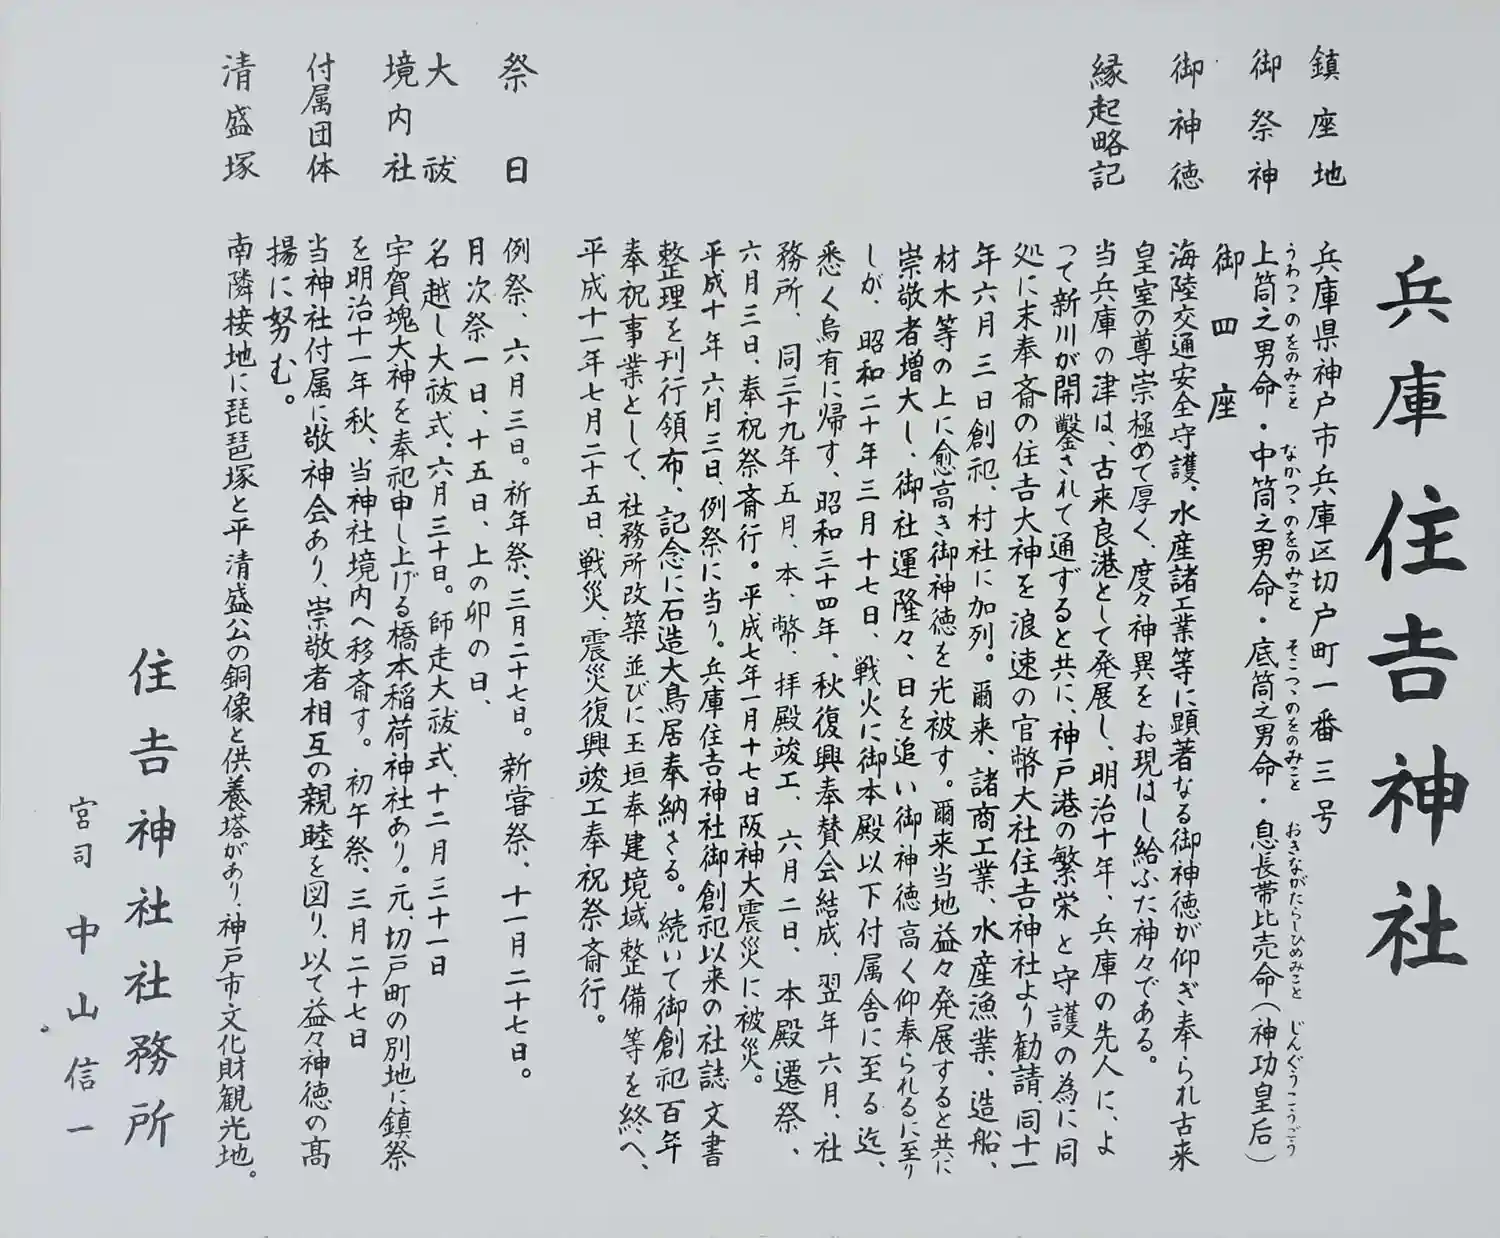 兵庫住吉神社
鎮座地 兵庫県神戸市兵庫区切戸町一番三号
うわつゝのをのみこと なかつゝのをのみこと そこつゝのをのみこと おきながたらしひめみこと じんぐうこうごう
御祭神 上筒之男命・中筒之男命・底筒之男命・息長帯比売命(神功皇后)
御四座
御神徳 海陸交通安全守護、水産諸工業等に顕著なる御神徳が仰ぎ奉られ古来
皇室の尊崇極めて厚く、度々神異をお現はし給ふた神々である。
縁起略記 当兵庫の津は、古来良港として発展し、明治十年、兵庫の先人に、よ
つて新川が開鑿されて通ずると共に、神戸港の繁栄と守護の為に同
処に末奉斎の住吉大神を浪速の官幣大社住吉神社より勧請、同十一
年六月三日創祀、村社に加列。爾来、諸商工業、水産漁業、造船、
材木等の上に愈高き御神徳を光被す。爾来当地益々発展すると共に
崇敬者増大し、御社運隆々、日を追い御神徳高く仰奉られるに至り
しが、昭和二十年三月十七日、戦火に御本殿以下付属舎に至る迄、
悉く烏有に帰す、昭和三十四年、秋復興奉賛会結成、翌年六月、社
務所、同三十九年五月、本、幣、拝殿竣工、六月二日、本殿遷祭、
六月三日、奉祝祭斎行。平成七年一月十七日阪神大震災に被災。
平成十年六月三日、例祭に当り。兵庫住吉神社御創祀以来の社誌文書
整理を刊行領布、記念に石造大鳥居奉納さる。続いて御創祀百年
奉祝事業として、社務所改築並びに玉垣奉建境域整備等を終へ、
平成十一年七月二十五日、戦災、震災復興竣工奉祝祭斎行。
祭日 例祭、六月三日。祈年祭、三月二十七日。新嘗祭、十一月二十七日。
月次祭一日、十五日、上の卯の日、
大祓 名越し大祓式、六月三十日。師走大祓式、十二月三十一日
境内社 宇賀魂大神を奉祀申し上げる橋本稲荷神社あり。元、切戸町の別地に鎮祭
を明治十一年秋、当神社境内へ移斎す。初午祭、三月二十七日
付属団体 当神社付属に敬神会あり、崇敬者相互の親睦を図り、以て益々神徳の高
揚に努む。
清盛塚 南隣接地に琵琶塚と平清盛公の銅像と供養塔があり、神戸市文化財観光地。
住吉神社社務所
宮司 中山信一